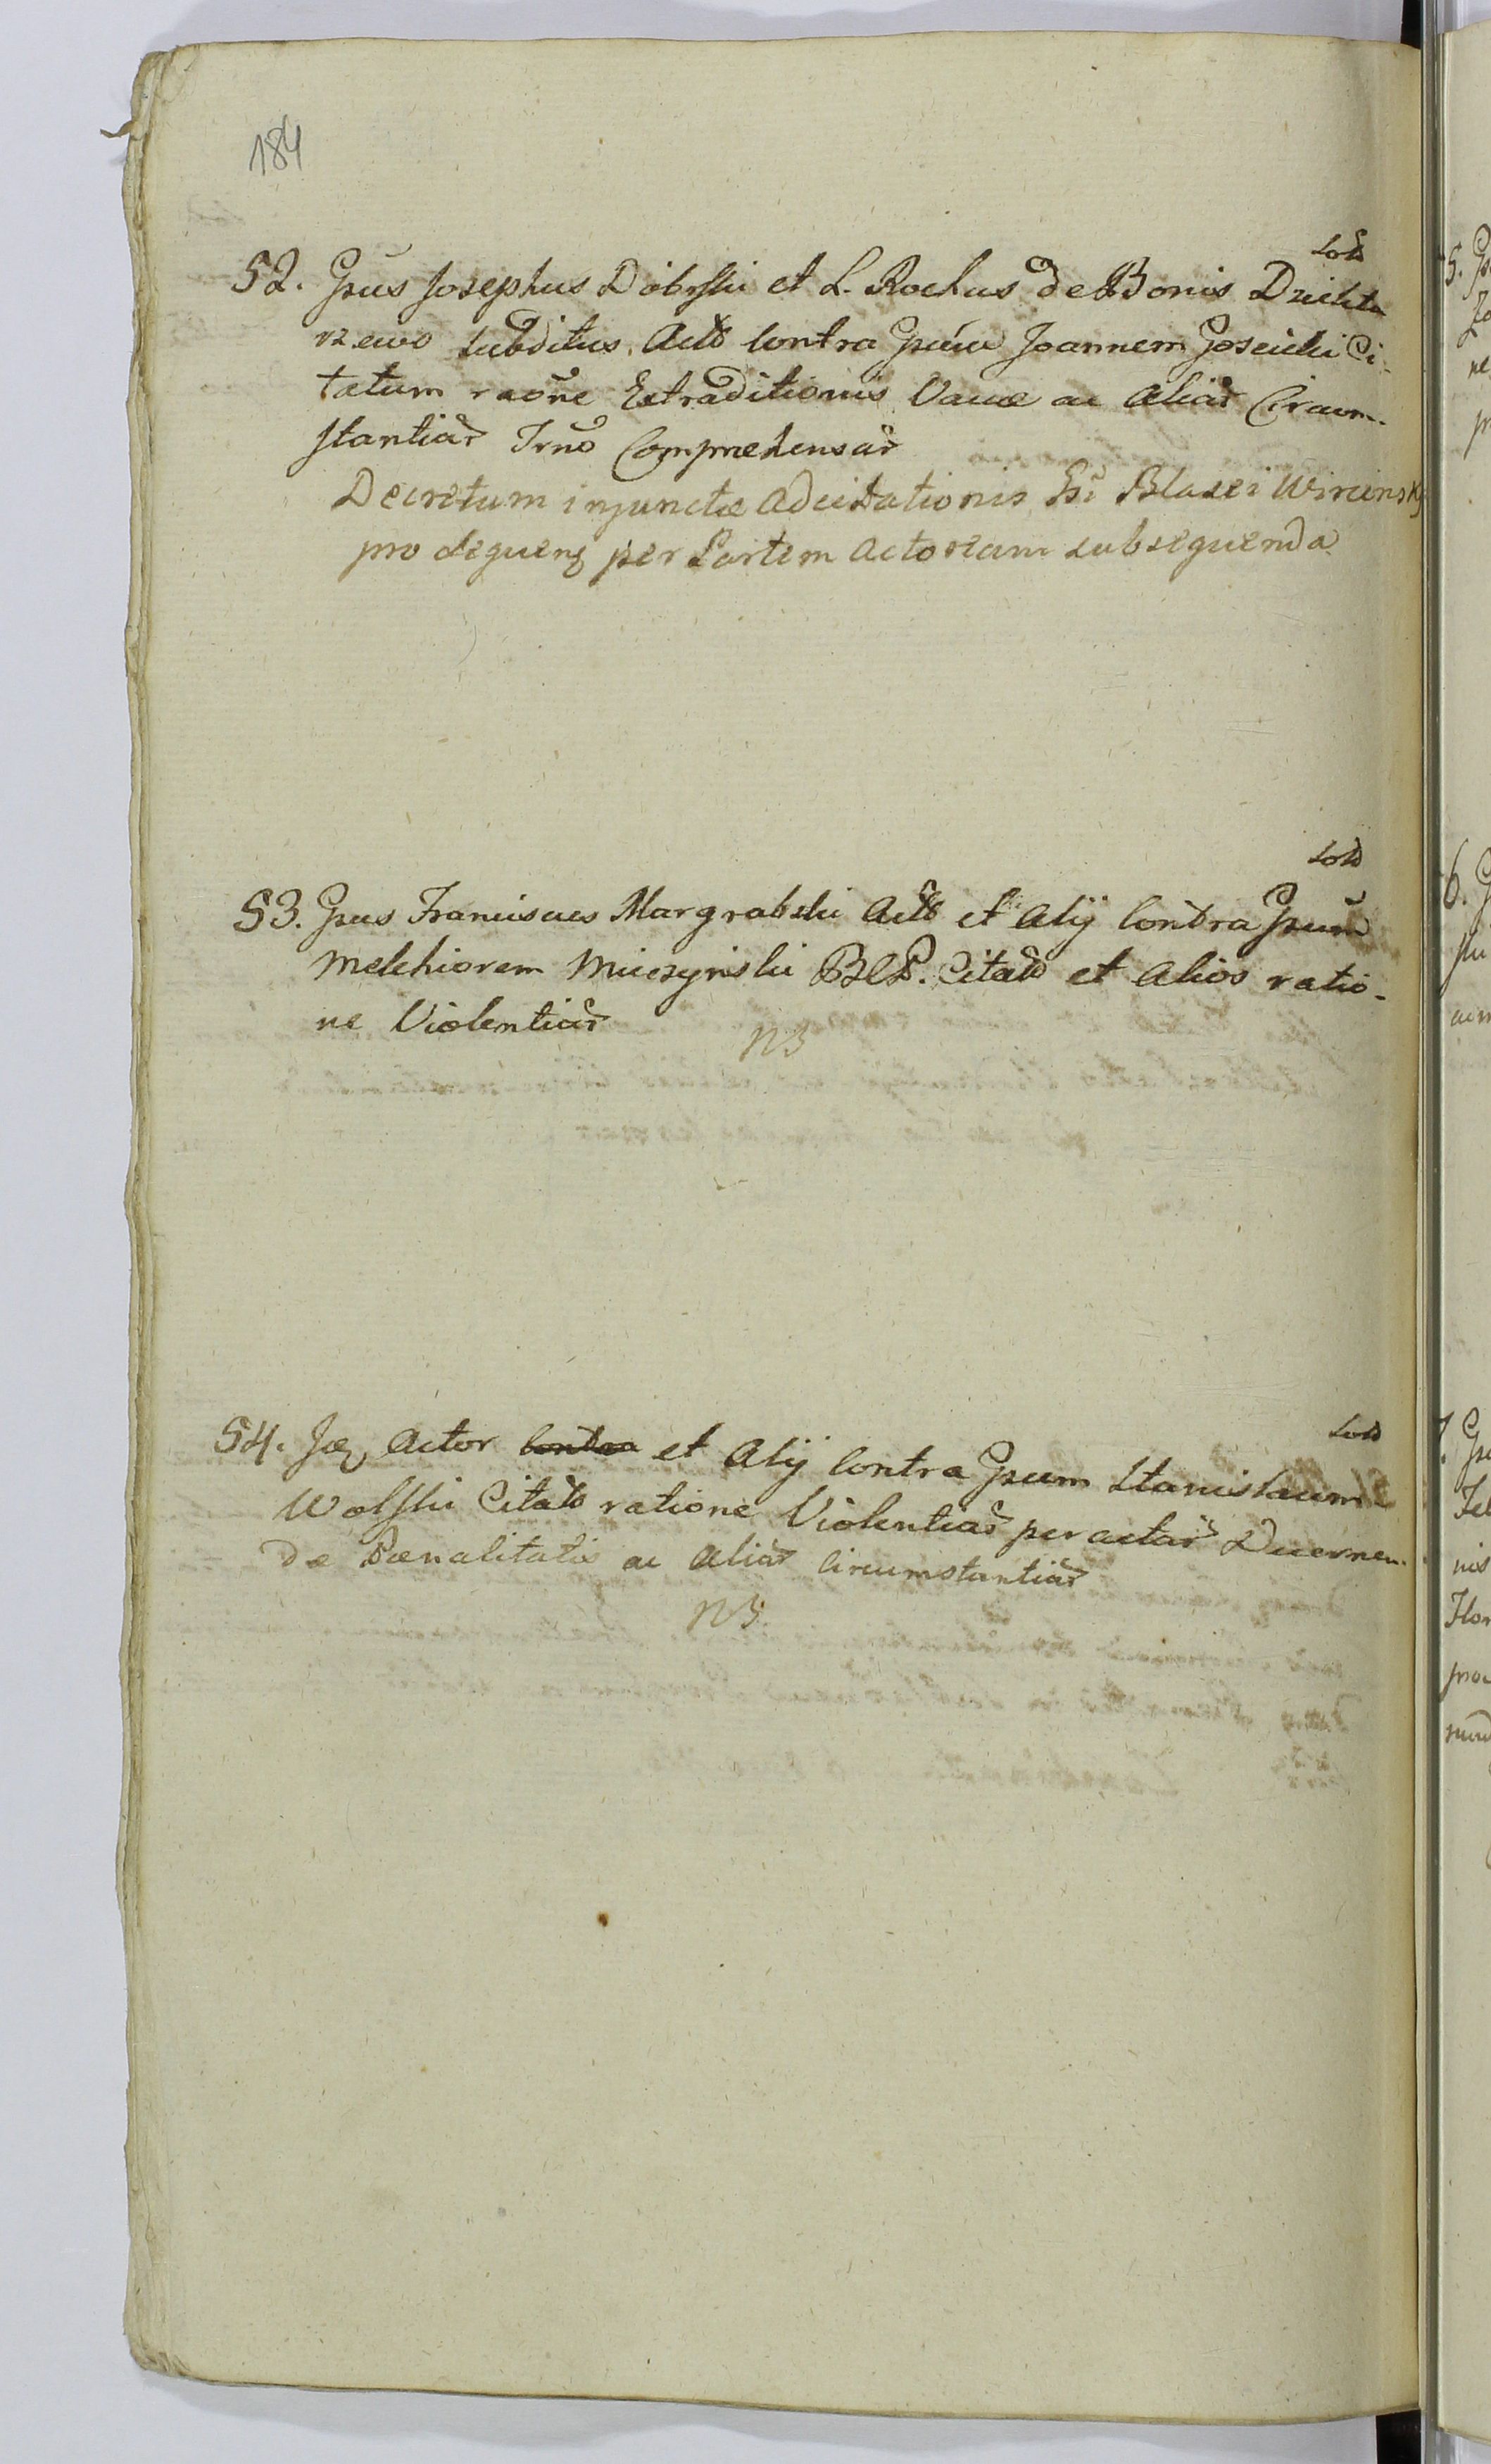 184
52. Gsus Josephus Dobrski et L. Rochus de Bonis Dziekta
rzewo Subditus Act contra Gsum Joannem Goscicki Ci-
tatum raone Extraditionis Vacæ ac Aliar Circum-
stantiar Trno Comprehensar
Decretum injunctæ Adcitationis Gsi Blasei Wircinsky
pro seqnen per Partem Actoream subsequenda
53. Gsus Franciscus Margrabski Act et Alij contra Gsum
Melchiorem Mieszynski BCP. Citat et Alios ratio-
ne Violentiar
NB
54. Actor contra et Alij contra Gsum Stanislaum
Wolski Citat ratione Violentiar peractar Decernen-
dæ Pœnalitatis ac Aliar circumstantiar
NB.